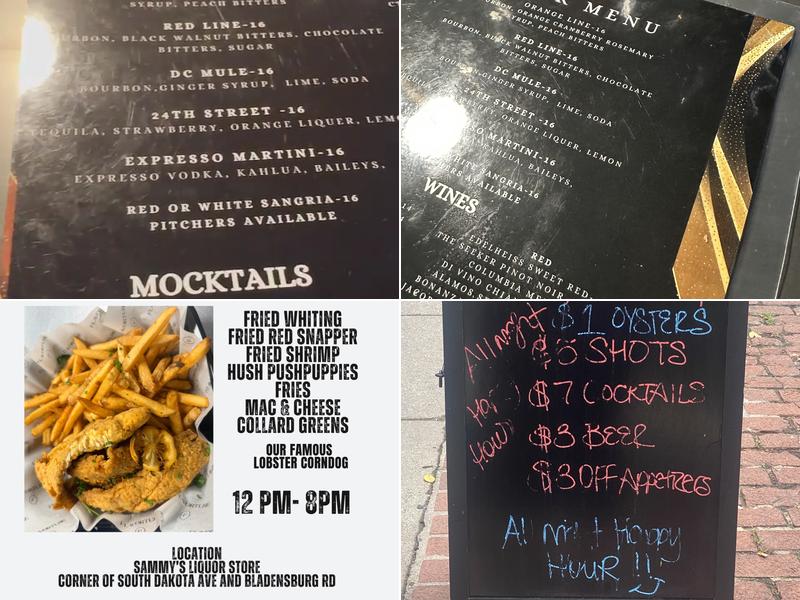 SYRUP, PEACH BITTERS
RED LINE-16
BOURBON, BLACK WALNUT BITTERS, CHOCOLATE
BITTERS, SUGAR
DC MULE-16
BOURBON,GINGER SYRUP, LIME, SODA
24TH STREET -16
TEQUILA, STRAWBERRY, ORANGE LIQUER, LEMO
EXPRESSO MARTINI-16
EXPRESSO VODKA, KAHLUA, BAILEYS,
RED OR WHITE SANGRIA-16
PITCHERS AVAILABLE
MOCKTAILS
MENU
ORANGE LINE-16
BOURBON, ORANGE CRANBERRY ROSEMARY
SYRUP, PEACH BITTERS
RED LINE-16
BOURBON, BLACK WALNUT BITTERS, CHOCOLATE
BITTERS, SUGAR
DC MULE-16
BOURBON,GINGER SYRUP, LIME, SODA
24TH STREET -16
ORANGE LIQUER, LEMON
MARTINI-16
KAHLUA, BAILEYS,
WHITE SANGRIA-16
AVAILABLE
WINES
14
RED
EDELHEISS SWEET RED
THE SEEKER PINOT NOIR
COLUMBIA ME
DI VINO CHIA
ALAMOS,
BONANZ
FRIED WHITING
FRIED RED SNAPPER
FRIED SHRIMP
HUSH PUSHPUPPIES
FRIES
MAC & CHEESE
COLLARD GREENS
OUR FAMOUS
LOBSTER CORNDOG
12 PM- 8PM
LOCATION
SAMMY'S LIQUOR STORE
CORNER OF SOUTH DAKOTA AVE AND BLADENSBURG RD
All night
$1 OYSTERS
$5 SHOTS
$7 COCKTAILS
$3 BEER
$3 OFF Appetizers
Happy
HOUR !!